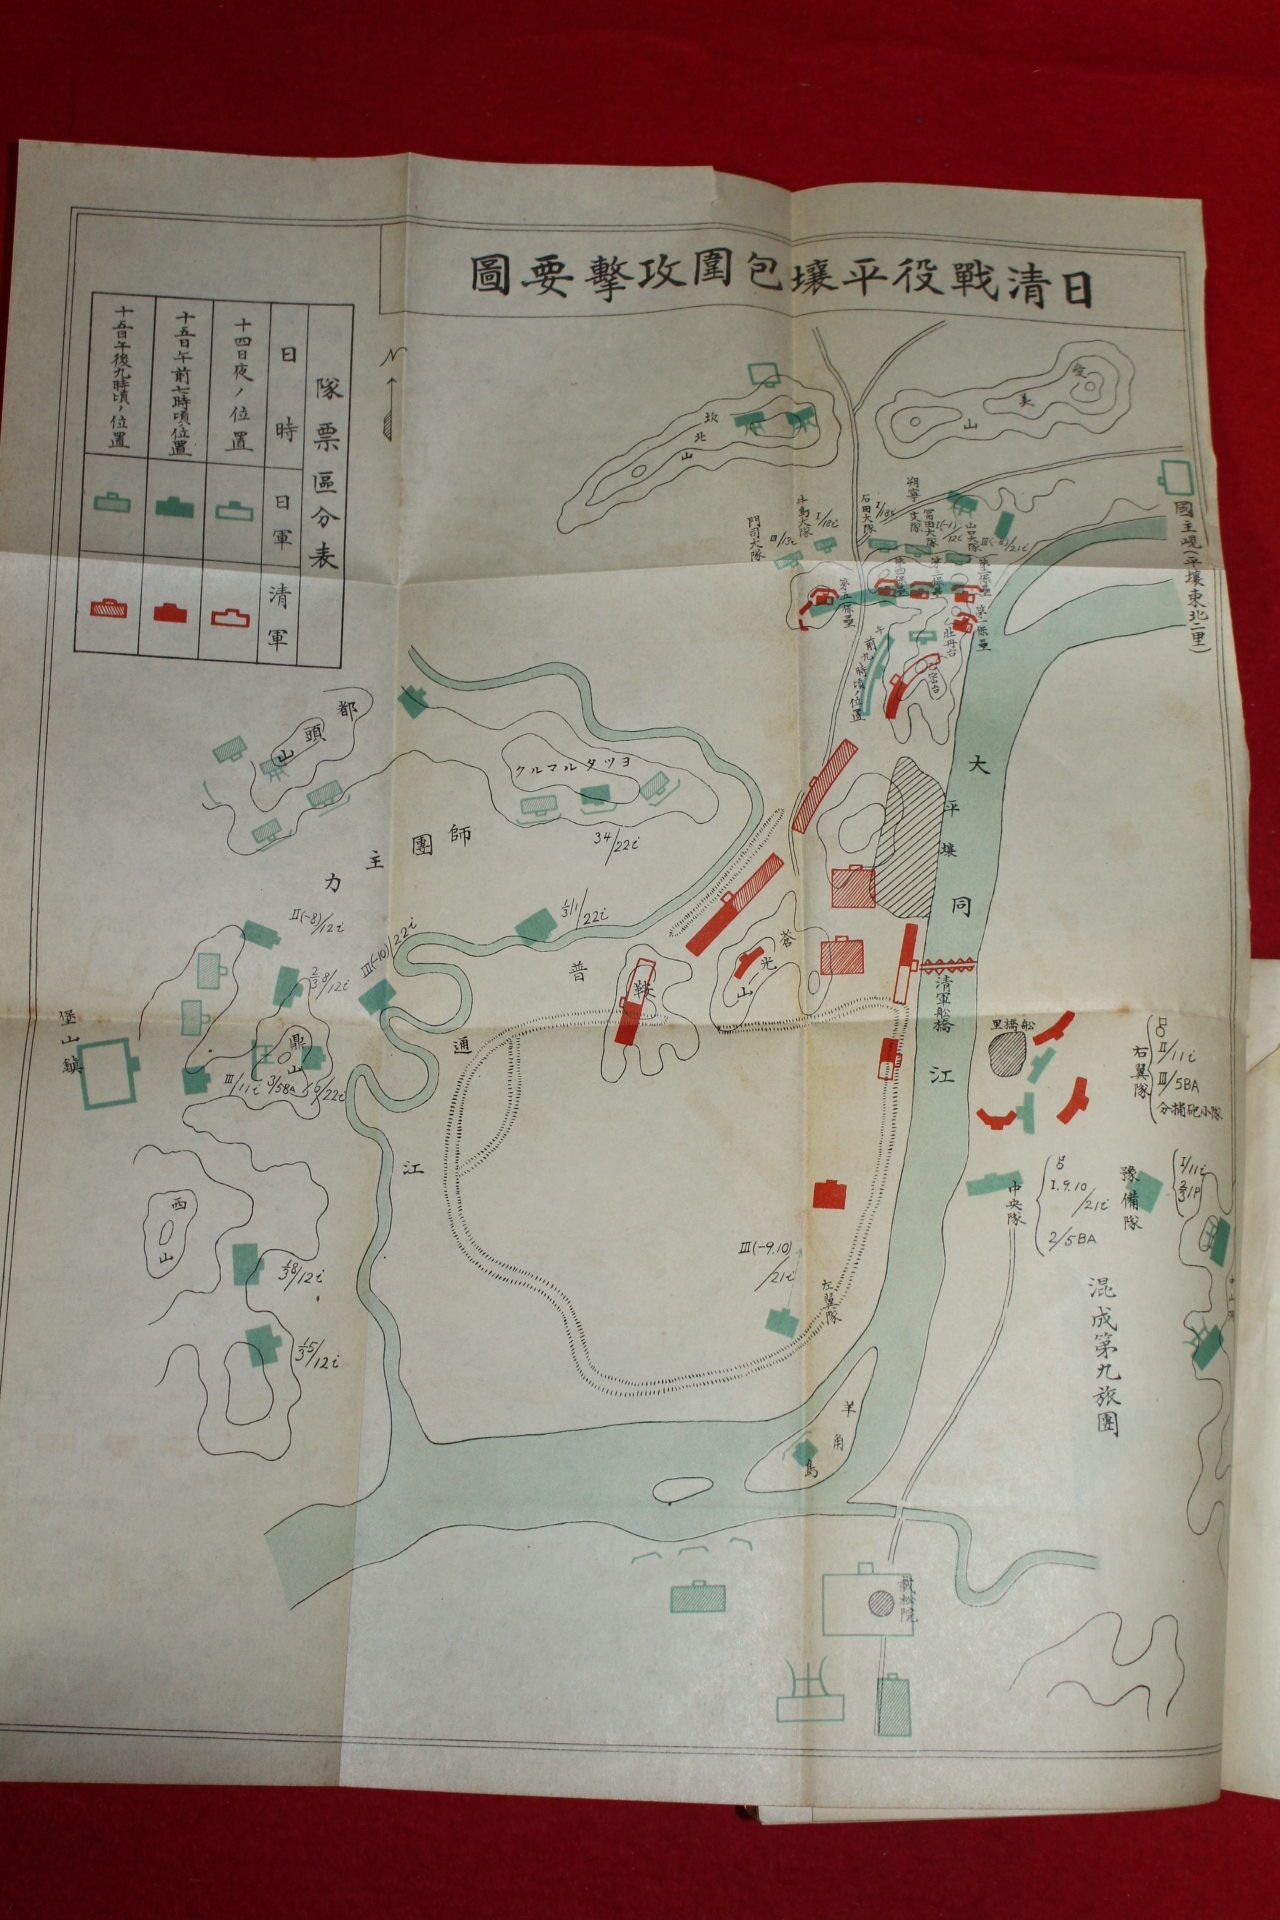 日清戰役平壤包圍攻擊要圖
隊票區分表
日時
日軍
清軍
十四日夜ノ位置
十五日午前七時頃ノ位置
十五日午後九時頃ノ位置
N
坎北山
愛美山
國主峴(平壤東北二里)
朔寧支隊
門司大隊
III/13i
牛島大隊
I/18i
石田大隊
I/18i
冨田大隊
I(-1)/12i
山口大隊
III(-8)/21i
第五堡壘
第四堡壘
第三堡壘
第二堡壘
第一堡壘
牡丹台
午前九時頃ノ位置
都頭山
ヨツタルマルク
34/22i
師團主力
II(-8)/12i
III(-10)/22i
⅓1/22i
⅔8/12i
大同江
平壤
普通江
鞍
蒼光山
清軍船橋
船橋里
堡山鎮
鼎山
III/11i
3/5BA
6/22i
右翼隊
II/11i
III/5BA
分捕砲小隊
中央隊
1.9.10/21i
2/5BA
豫備隊
I/11i
⅔1P
西山
⅓8/12i
⅓5/12i
III(-9.10)/21i
左翼隊
混成第九旅團
羊角島
裁松院